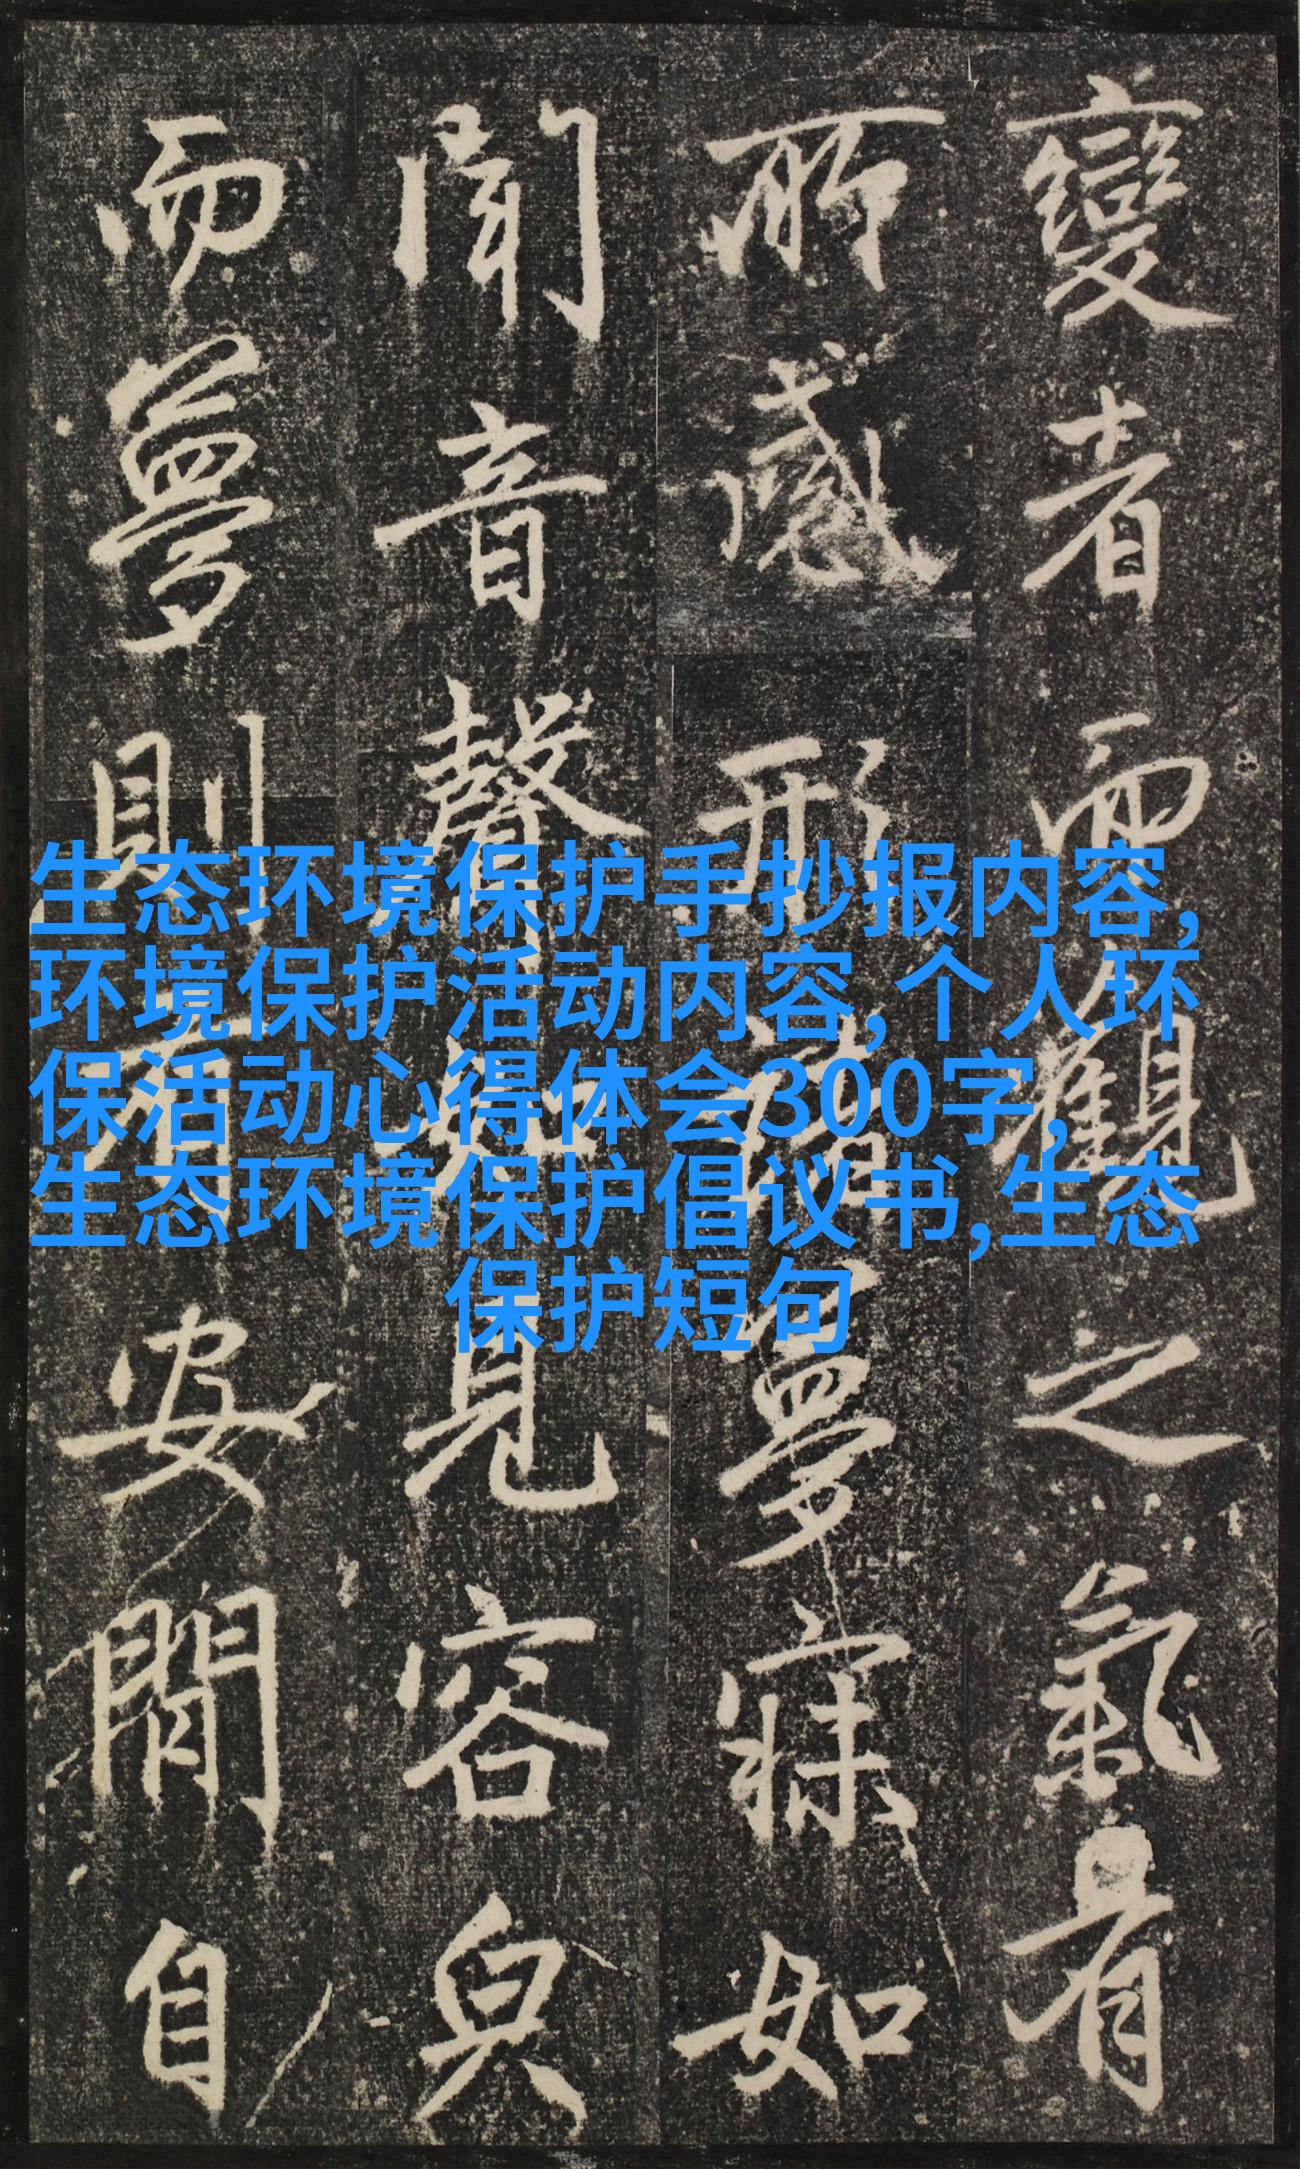 變者而觀之氣有
所感形諸夢寐如
聞音聲如見容貌
而夢則有安閒自
生态环境保护手抄报内容,
环境保护活动内容,个人环
保活动心得体会300字,
生态环境保护倡议书,生态
保护短句